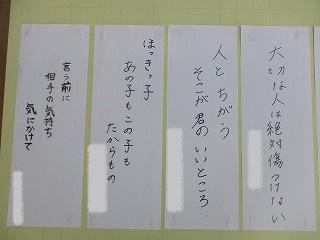 大切な人は絶対傷つけない
人とちがう
そこが君のいいところ
ほっきっ子
あの子もこの子も
たからもの
言う前に
相手の気持ち
気にかけて